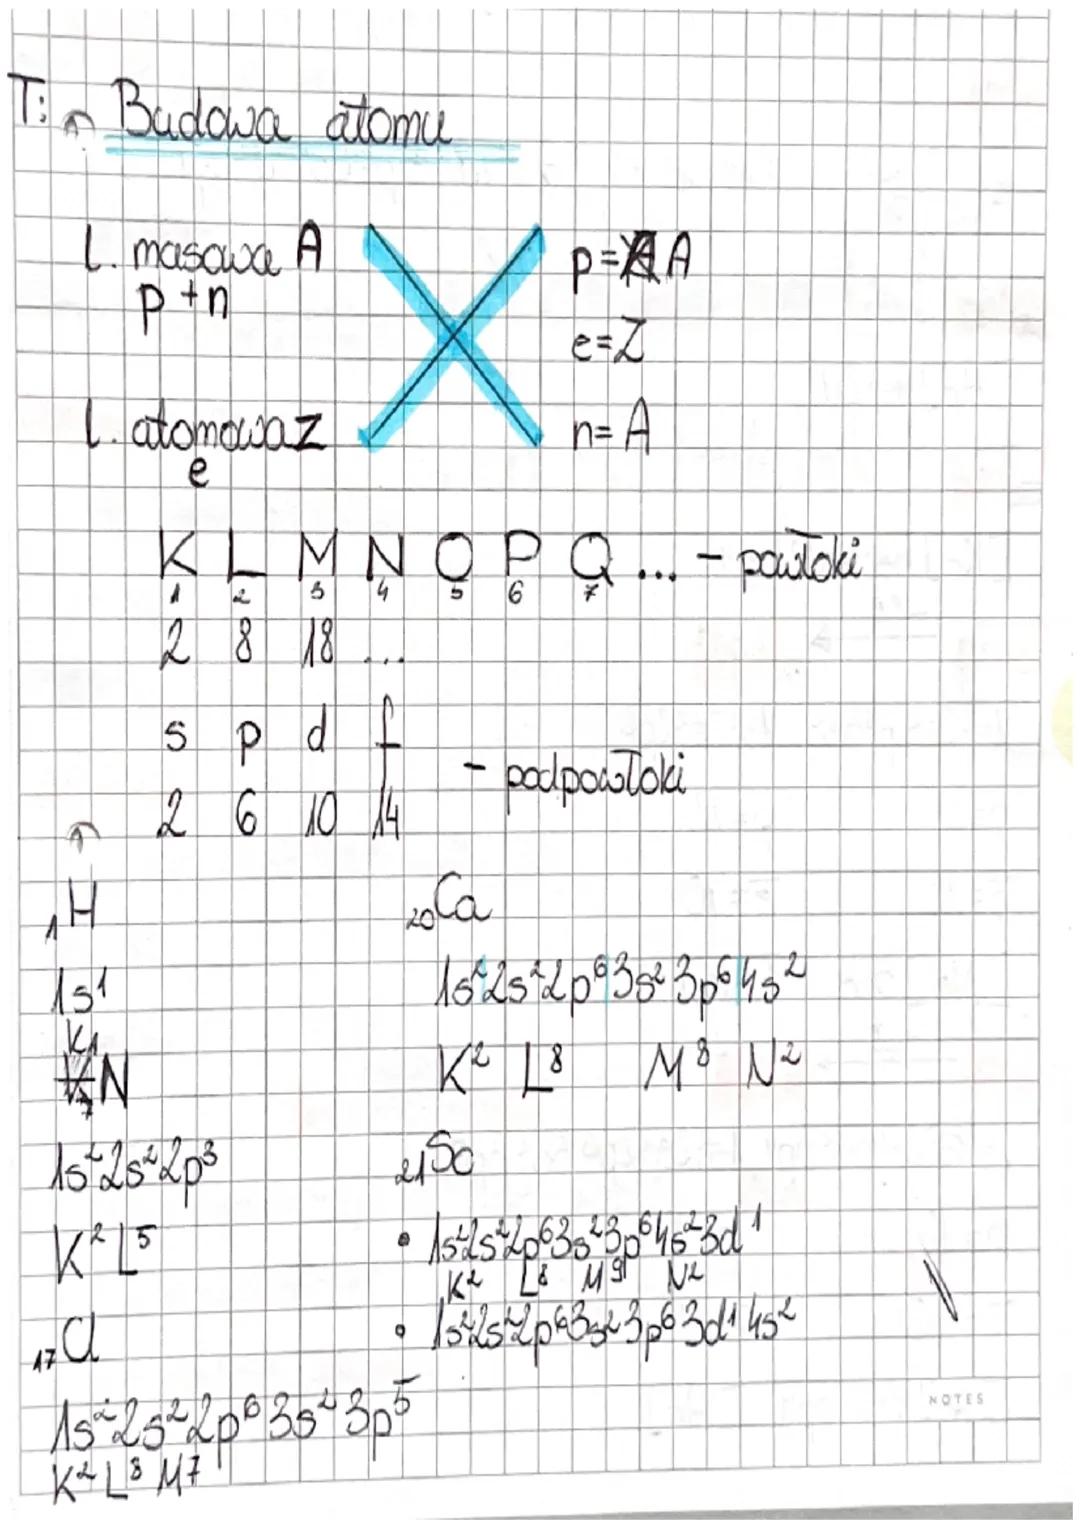 T: Budowa atomu
l. masowa A
p+n
p=A
e=Z
l. atomowa Z
e
n=A
K L M N O P Q ... - powłoki
1 2 3 4 5 6 7
2 8 18 ...
s p d f
- podpowłoki
2 6 10 14
₁H
1s¹
K¹
₇N
1s²2s²2p³
K² L⁵
₁₇Cl
1s²2s²2p⁶3s²3p⁵
K² L⁸ M⁷
₂₀Ca
1s²2s²2p⁶3s²3p⁶4s²
K² L⁸ M⁸ N²
₂₁Sc
• 1s²2s²2p⁶3s²3p⁶4s²3d¹
K² L⁸ M⁹ N²
• 1s²2s²2p⁶3s²3p⁶3d¹4s²
NOTES